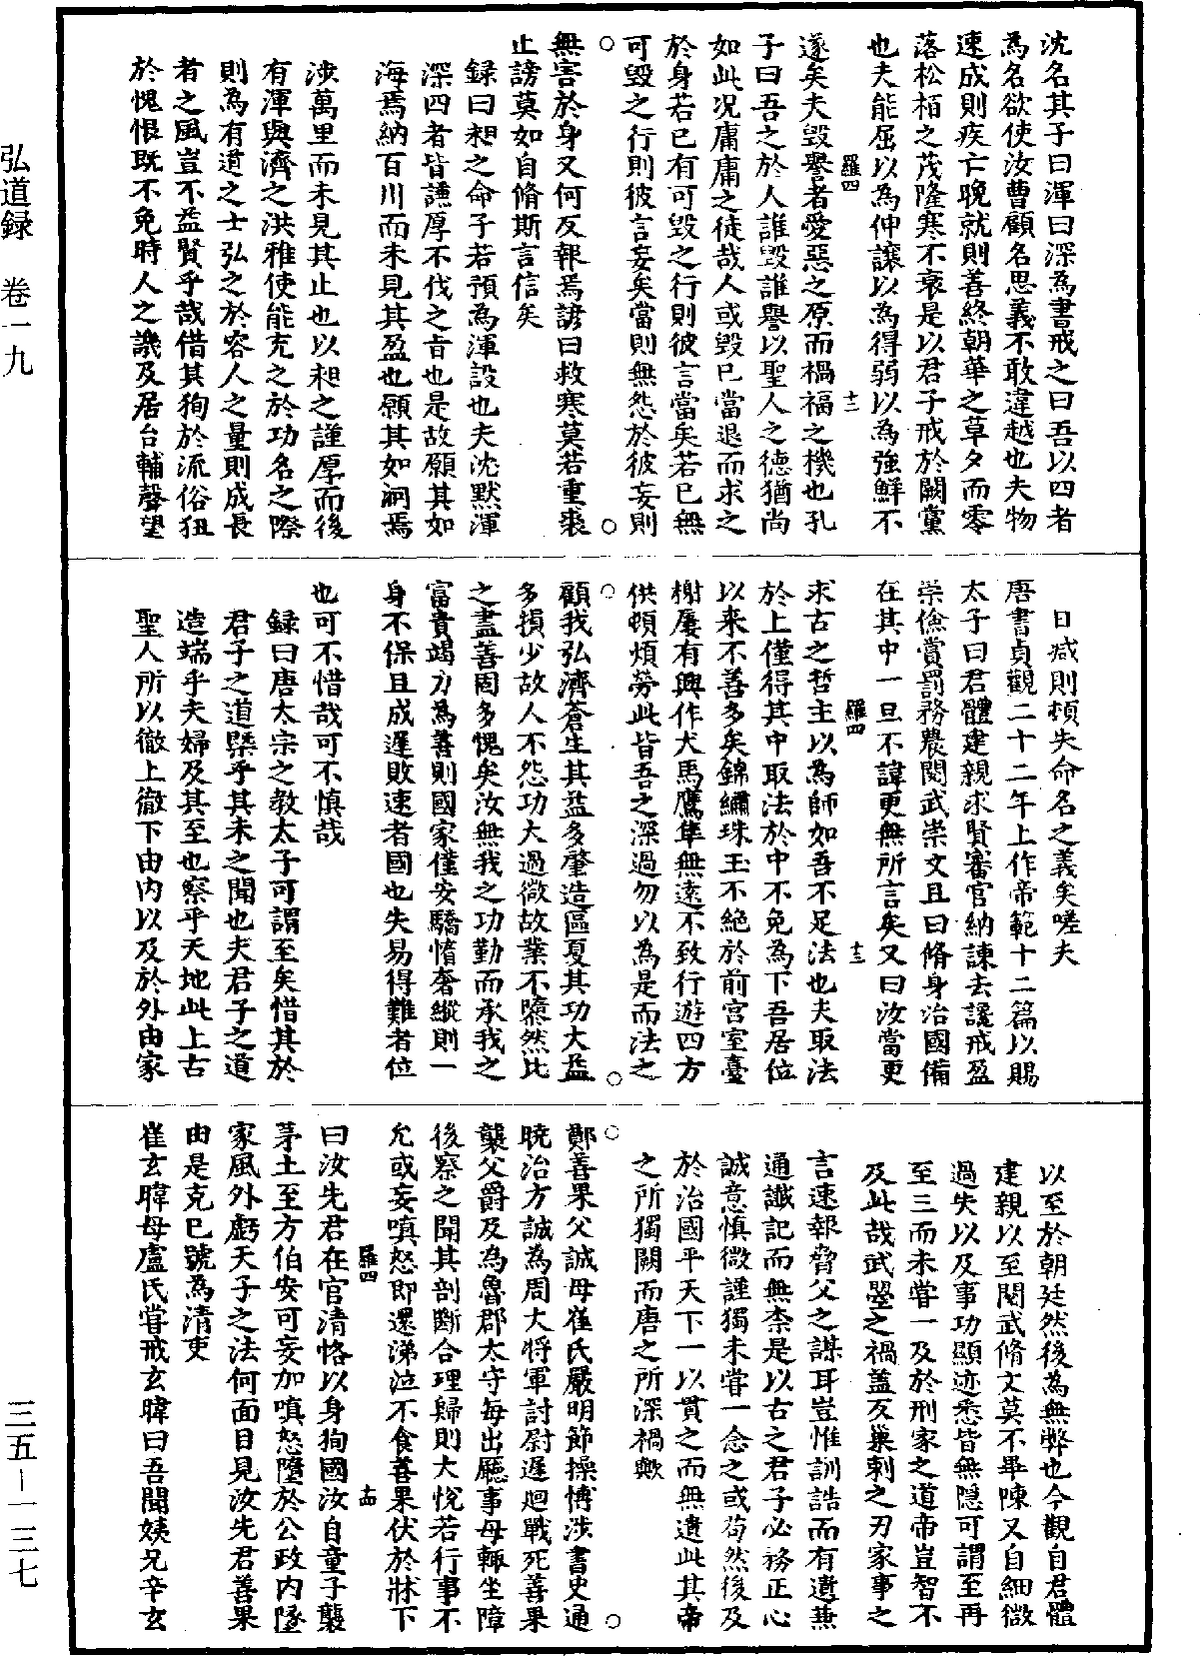 沈名其子曰渾曰深為書戒之曰吾以四者
為名欲使汝曹顧名思義不敢違越也夫物
速成則疾亡晚就則善終朝華之草夕而零
落松栢之茂隆寒不衰是以君子戒於闕黨
也夫能屈以為伸讓以為得弱以為強鮮不
羅四
十二
遂矣夫毀譽者愛惡之原而禍福之機也孔
子曰吾之於人誰毀誰譽以聖人之德猶尚
如此況庸庸之徒哉人或毀已當退而求之
於身若已有可毀之行則彼言當矣若已無
可毀之行則彼言妄矣當則無怨於彼妄則
○
○
無害於身又何反報焉諺曰救寒莫若重裘
止謗莫如自脩斯言信矣
錄曰昶之命子若預為渾設也夫沈默渾
深四者皆謙厚不伐之旨也是故願其如
海焉納百川而未見其盈也願其如河焉
涉萬里而未見其止也以昶之謹厚而後
有渾與濟之洪雅使能充之於功名之際
則為有道之士弘之於容人之量則成長
者之風豈不益賢乎哉惜其狥於流俗狃
於愧恨既不免時人之譏及居台輔聲望
日減則頓失命名之義矣嗟夫
唐書貞觀二十二年上作帝範十二篇以賜
太子曰君體建親求賢審官納諫去讒戒盈
崇儉賞罰務農閱武崇文且曰脩身治國備
在其中一旦不諱更無所言矣又曰汝當更
羅四
十三
求古之哲主以為師如吾不足法也夫取法
於上僅得其中取法於中不免為下吾居位
以来不善多矣錦繡珠玉不絕於前宮室臺
榭屢有興作犬馬鷹隼無遠不致行遊四方
供頓煩勞此皆吾之深過勿以為是而法之
○
○
顧我弘濟蒼生其益多肇造區夏其功大益
多損少故人不怨功大過微故業不隳然比
之盡善固多愧矣汝無我之功勤而承我之
富貴竭力為善則國家僅安驕惰奢縱則一
身不保且成遲敗速者國也失易得難者位
也可不惜哉可不慎哉
錄曰唐太宗之教太子可謂至矣惜其於
君子之道槩乎其未之聞也夫君子之道
造端乎夫婦及其至也察乎天地此上古
聖人所以徹上徹下由内以及於外由家
以至於朝廷然後為無弊也今觀自君體
建親以至閱武脩文莫不畢陳又自細微
過失以及事功顯迹悉皆無隱可謂至再
至三而未嘗一及於刑家之道帝豈智不
及此哉武曌之禍蓋及巢刺之刃家事之
言速報脅父之謀耳豈惟訓誥而有遺兼
通讖記而無柰是以古之君子必務正心
誠意慎微謹獨未嘗一念之或苟然後及
於治國平天下一以貫之而無遺此其帝
之所獨闕而唐之所深禍歟
○
○
鄭善果父誠母崔氏嚴明節操博涉書史通
曉治方誠為周大將軍討尉遲迥戰死善果
襲父爵及為魯郡太守每出廳事母輒坐障
後察之聞其剖斷合理歸則大悅若行事不
允或妄嗔怒即還涕泣不食善果伏於牀下
羅四
十四
曰汝先君在官清恪以身狥國汝自童子襲
茅土至方伯安可妄加嗔怒隳於公政内墜
家風外虧天子之法何面目見汝先君善果
由是克已號為清吏
崔玄暐母盧氏嘗戒玄暐曰吾聞姨兄辛玄
弘道録 卷一九
三五－一三七